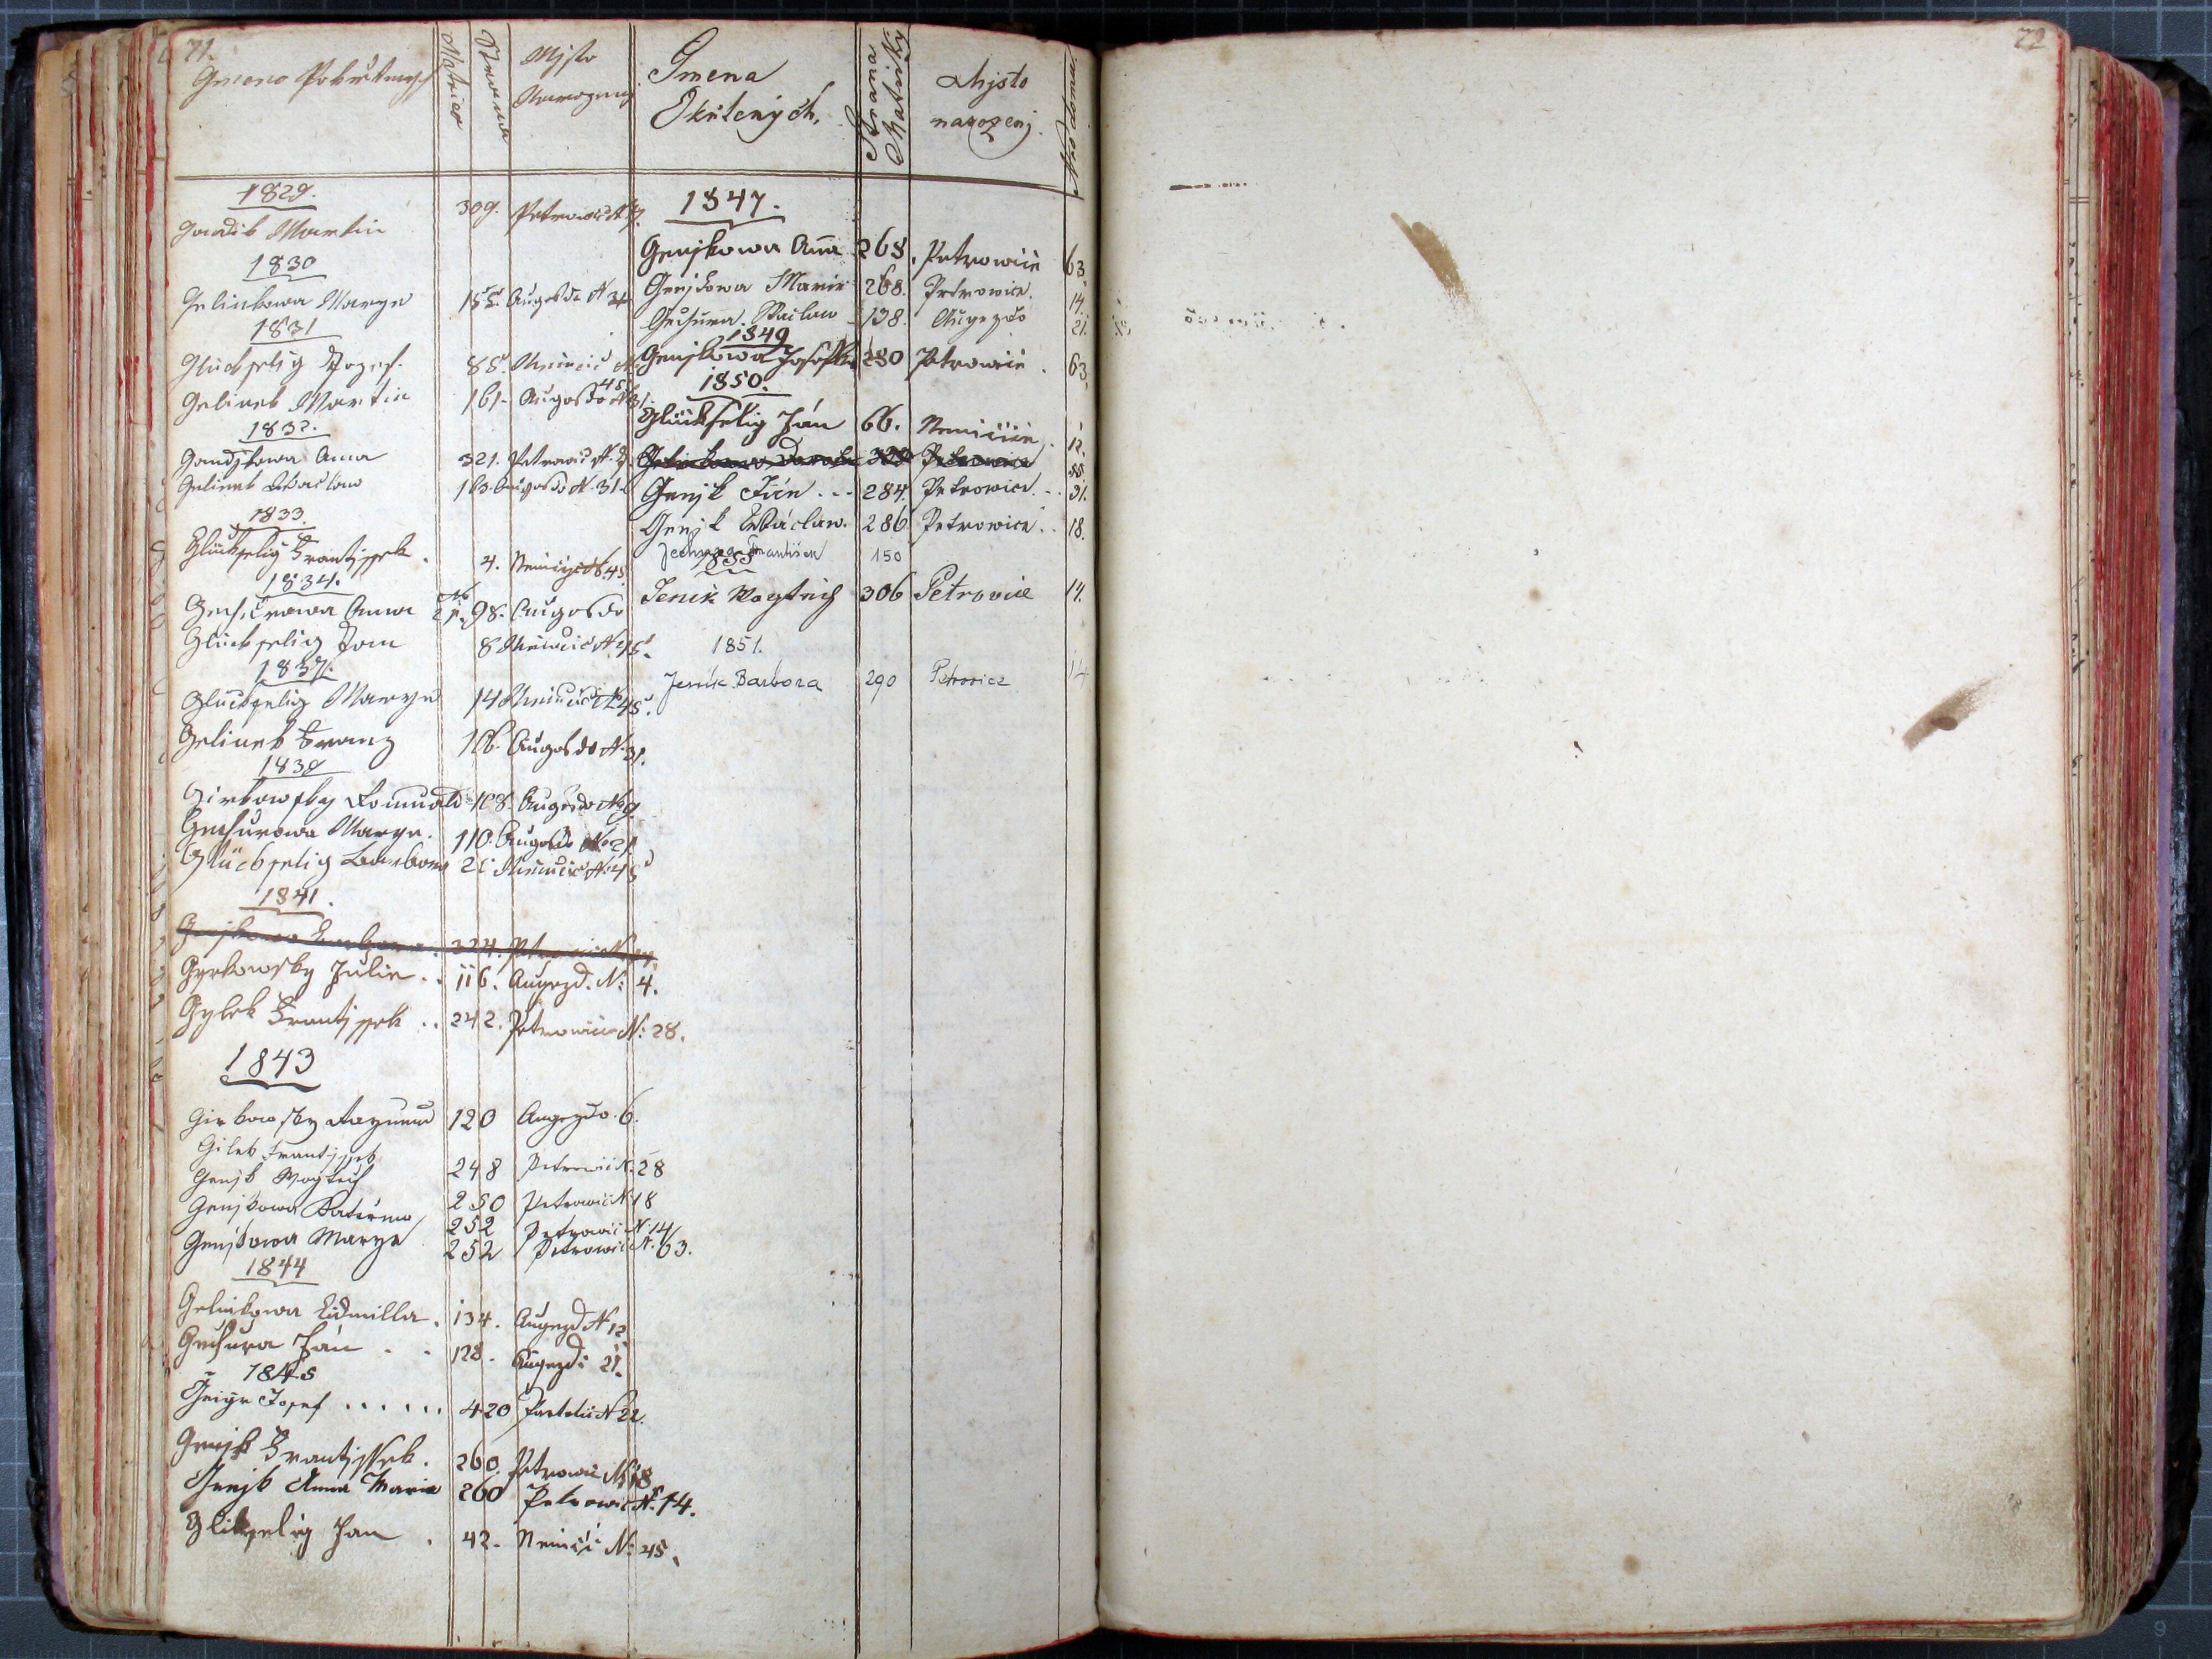 71.
Gmeno Pokřtených
Matrica
Strana
Mjsto
Narozenj
1829.
Martin
309. Petrowic N.
1830
Gelinkowa Marya
155. Augezdo N. 31
1831
Glückselig Jozef.
88. Nemčic N. 45
Gelinek Martin
161. Augezdo N. 31
1832.
Anna
321. Petrowic N.
Gelinek Wáclaw
163. Augezdo N. 31
1833.
Glückselig Frantjssek.
4. Nemčic N. 45
1834.
Anna
98. Augezdo
Glückselig
8 Nemčic N. 45.
1837.
Glückselig Marya
14 Nemčic N. 45.
Gelinek Franz
106. Augezdo N. 31.
1838
Girkowsky Romuald
108. Augezdo No 9
Gechurowa Marya.
110. Augezdo No 21.
Glückselig Barbora
21 Nemčic N. 45
1841.
Genjkowa Barbora. 324. Petrowic N.
Gyrkowsky Julie . . 116. Augezd. N: 4.
Gylek Frantjssek . . 242. Petrowice N: 28.
1843
Girkowsky 120 Augezdo. 6.
Gilek Frantjssek 248 Petrowic N. 28
Genjk Wogtěch 250 Petrowic N. 18
Genjkowa Kateřina 252 Petrowic N. 14
Genjkowa Marya 252 Petrowic N. 63.
1844
Gelinkowa Lidmilla. 134. Augezd N 12
Gechura Ján . . 128. Augezd: 21.
1845
Josef . . . . . . 420 N 22.
Genjk Frantjssek. 260. Petrowic N. 18
Genjk Anna Maria 260 Petrowic N. 14.
Glikselig Jan . 42. Nemčic N: 45.
Gmena
Okřtených.
Strana
Matriky
Mjsto
narozenj.
Nro domu.
1847.
Genjkowa Anna 268. Petrowice 63.
Genjkowa Marie 268. Petrowice. 14.
Gechura. Wáclaw 138. Augezdo 21.
1849
Genjkowa Josefka 280 Petrowice. 63.
1850.
Glückselig Ján 66. Nemčice. 12.
Petrowice 55.
Genjk Jan . . . 284. Petrowice. . . 31.
Genjk Wácław. 286 Petrowice. . 18.
Jechura František 150
1855
Jeník Wogtěch 306 Petrovice 14.
1851.
Jeník Barbora 290 Petrovice 14
72